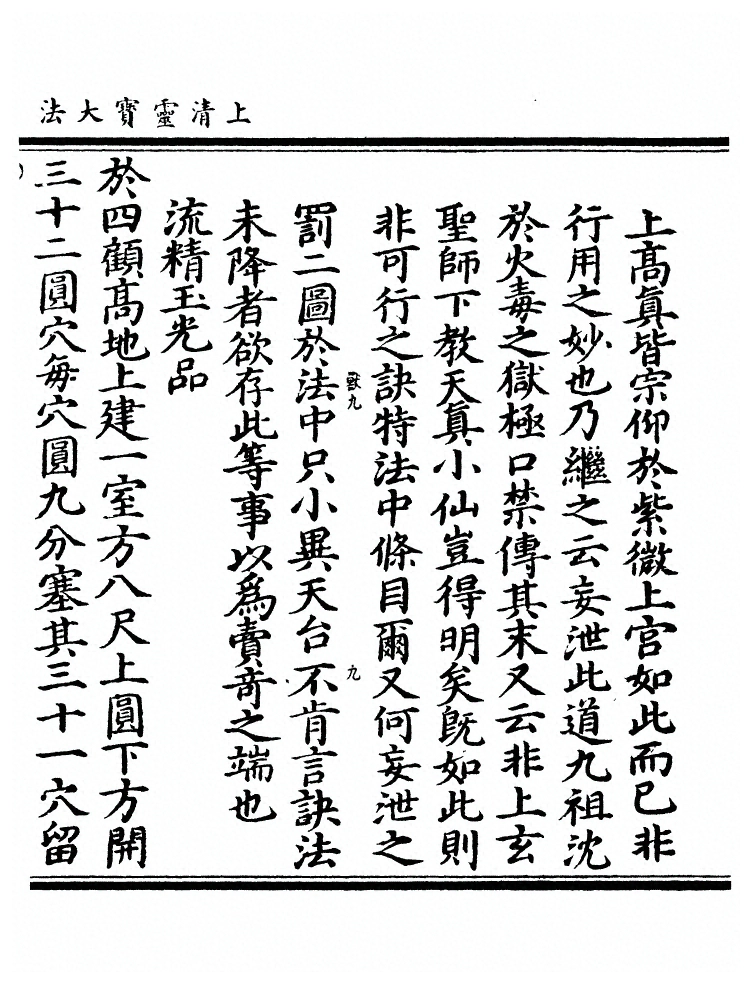 上清靈寶大法
上髙真皆宗仰於紫微上宫如此而已非
行用之妙也乃繼之云妄泄此道九祖沈
於火毒之獄極口禁傳其末又云非上玄
聖師下教天真小仙豈得明矣旣如此則
非可行之訣特法中條目爾又何妄泄之
獸九
九
罰二圖於法中只小異天台不肯言訣法
未降者欲存此等事以爲賣竒之端也
流精玉光品
於四顧髙地上建一室方八尺上圓下方開
三十二圓穴每穴圓九分塞其三十一穴留